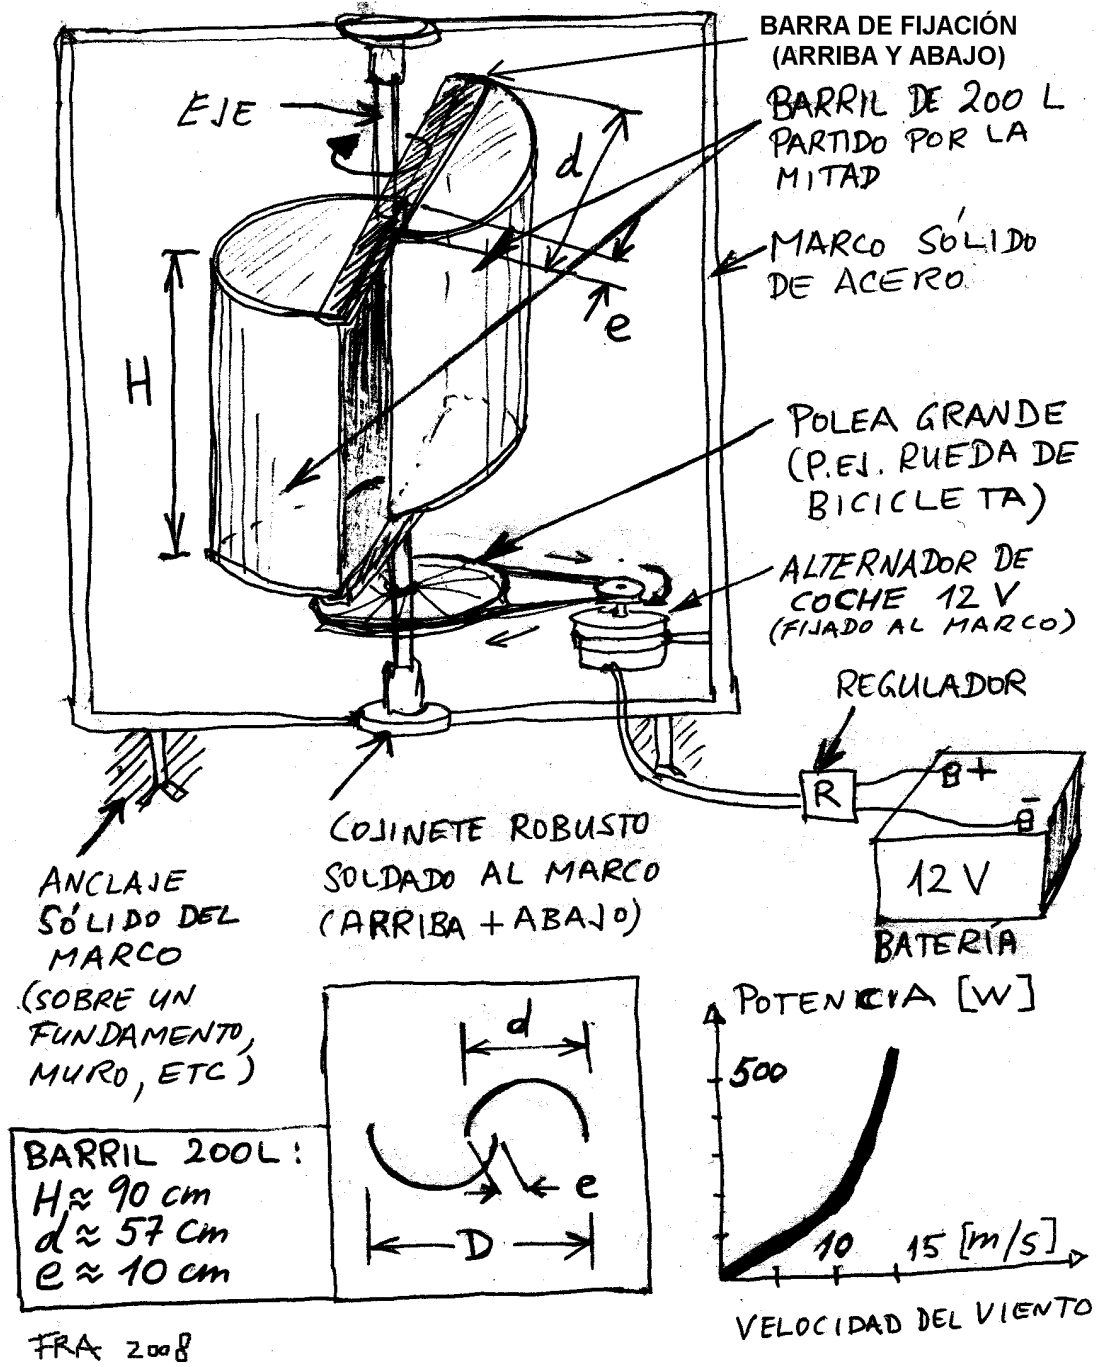 BARRA DE FIJACIÓN
(ARRIBA Y ABAJO)
EJE
BARRIL DE 200 L
PARTIDO POR LA
MITAD
d
MARCO SÓLIDO
DE ACERO
e
H
POLEA GRANDE
(P.EJ. RUEDA DE
BICICLETA)
ALTERNADOR DE
COCHE 12 V
(FIJADO AL MARCO)
REGULADOR
R
+
-
12 V
BATERÍA
COJINETE ROBUSTO
SOLDADO AL MARCO
(ARRIBA + ABAJO)
ANCLAJE
SÓLIDO DEL
MARCO
(SOBRE UN
FUNDAMENTO,
MURO, ETC)
d
e
D
BARRIL 200L:
H ≈ 90 cm
d ≈ 57 cm
e ≈ 10 cm
POTENCIA [W]
500
10 15 [m/s]
VELOCIDAD DEL VIENTO
FRA 2008